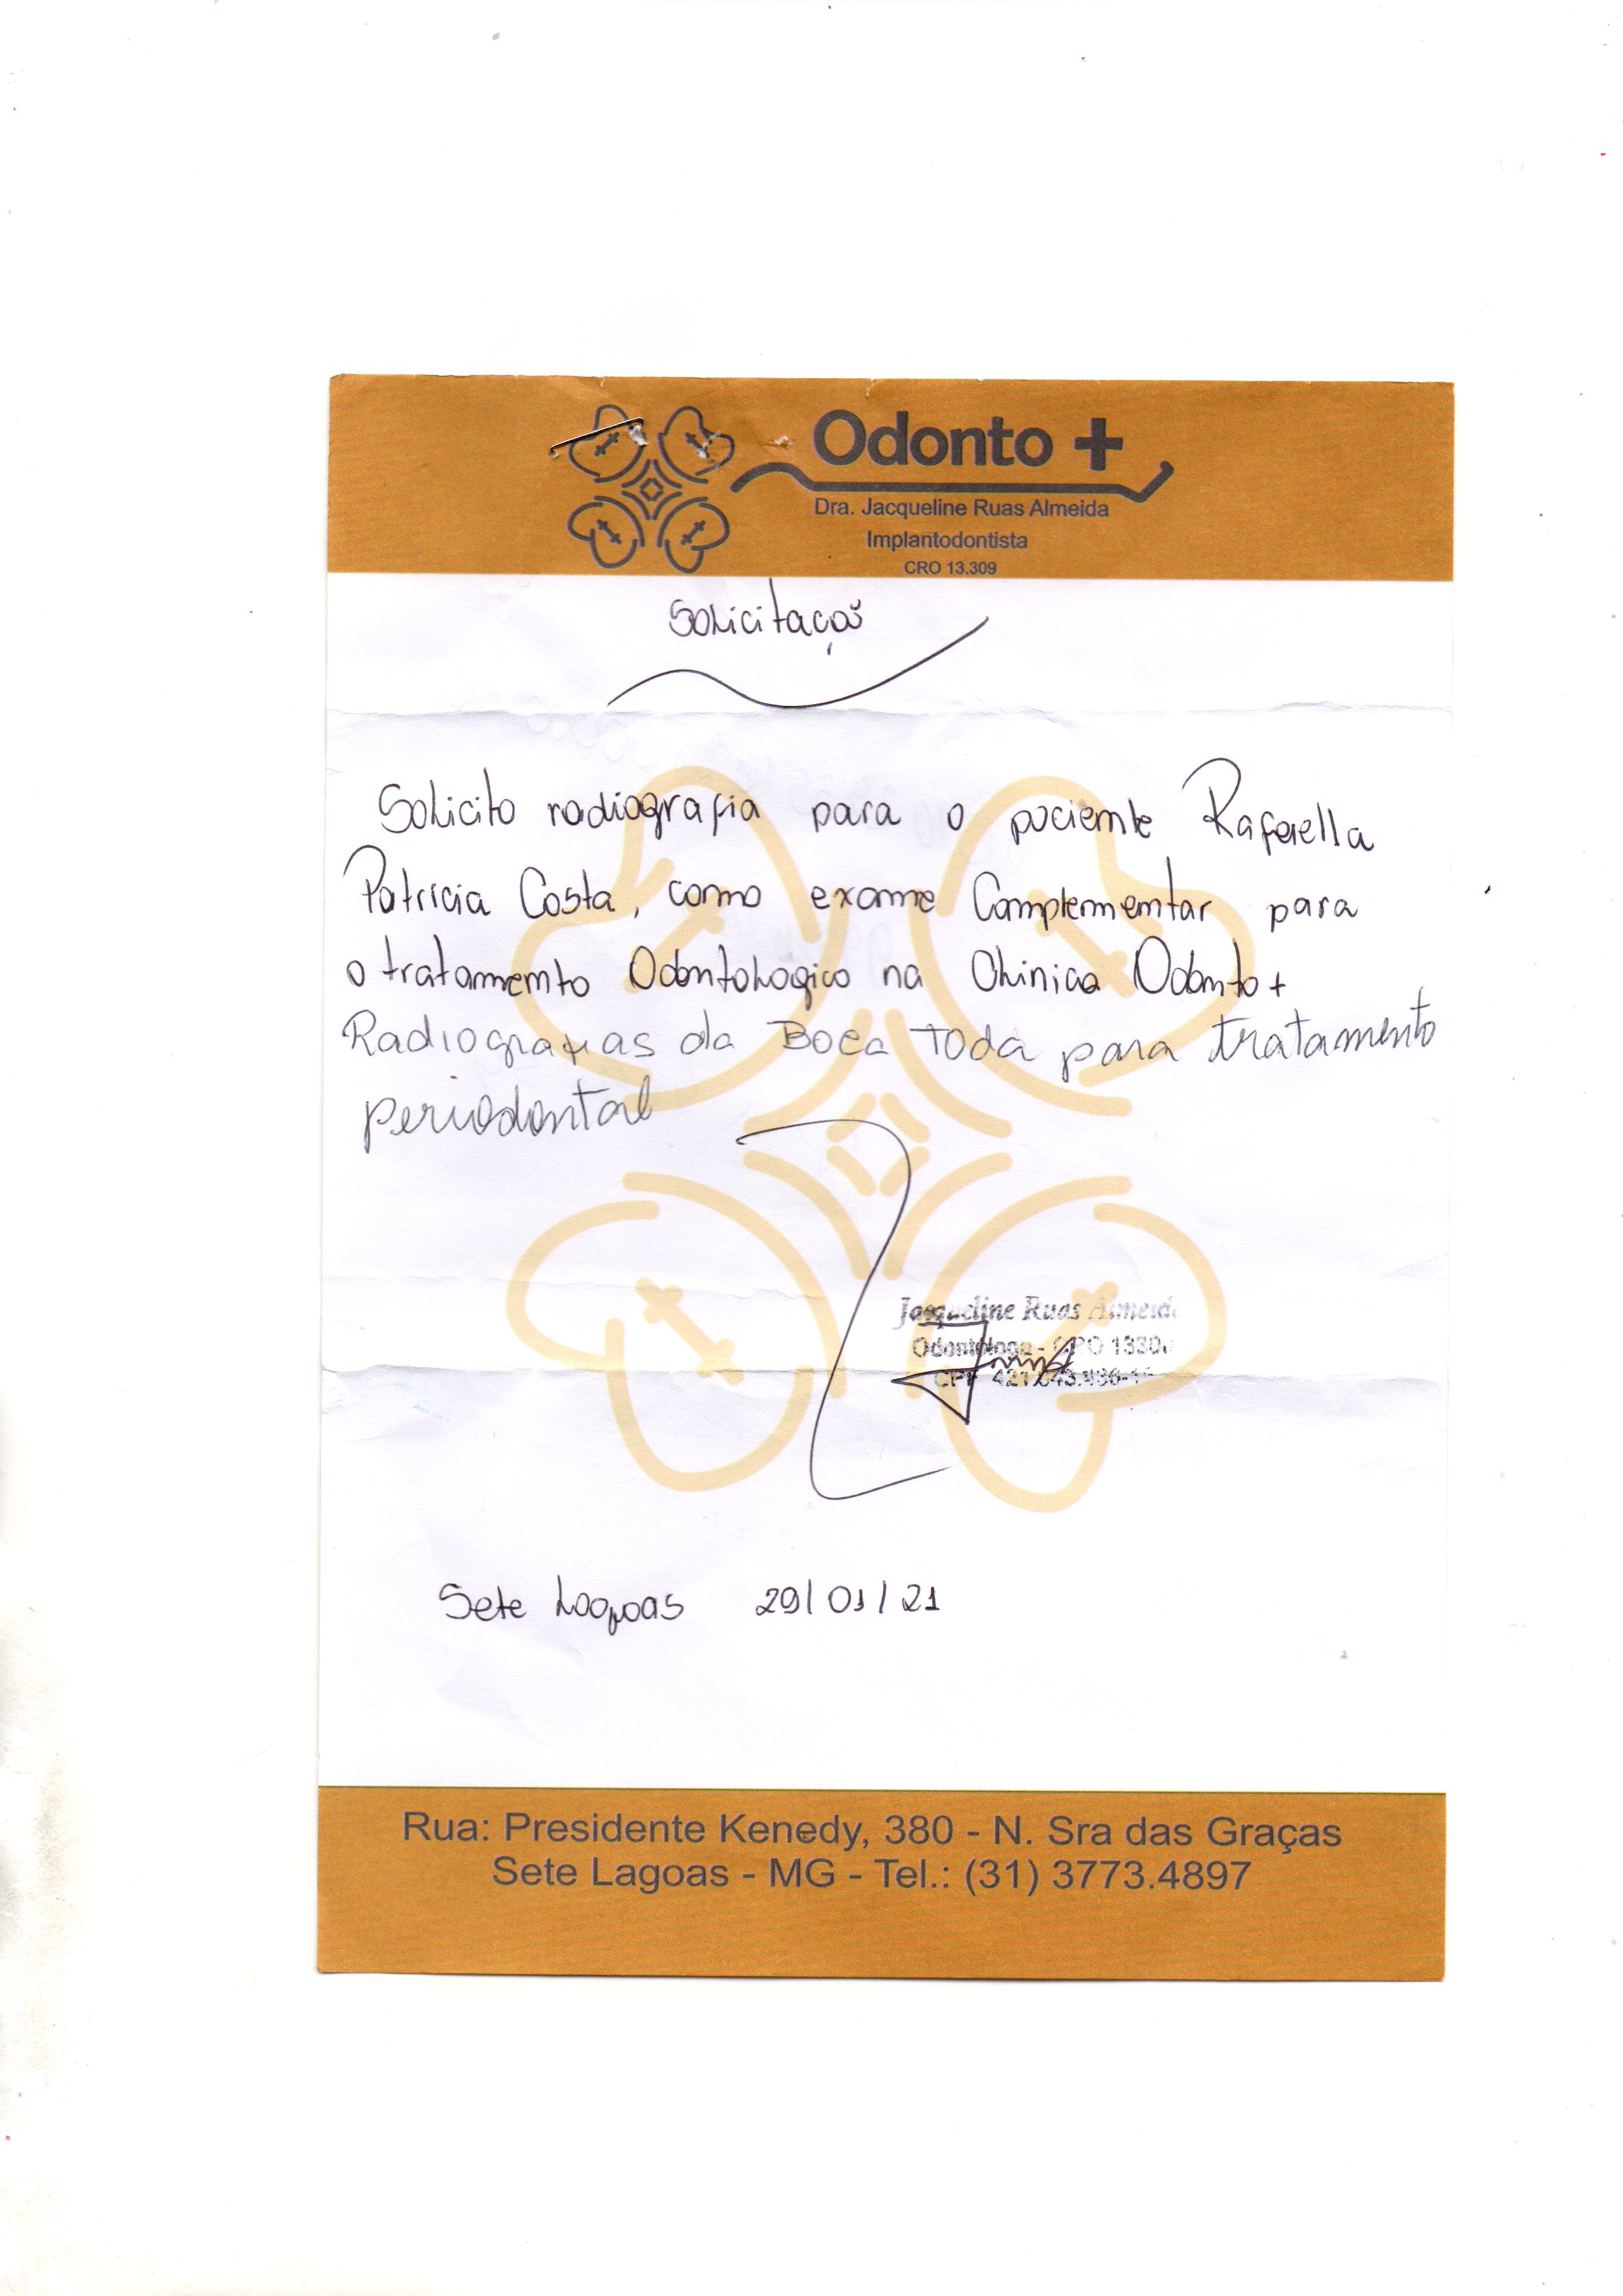 Odonto +
Dra. Jacqueline Ruas Almeida
Implantodontista
CRO 13.309
Solicitação
Solicito radiografia para o paciente Rafaella
Patricia Costa, como exame Complementar para
o tratamento Odontologico na Clinica Odonto+
Radiografias da Boca Toda para tratamento
periodontal
Jacqueline Ruas Almeida
Odontóloga - CRO
CPF
Sete Lagoas 29/01/21
Rua: Presidente Kenedy, 380 - N. Sra das Graças
Sete Lagoas - MG - Tel.: (31) 3773.4897